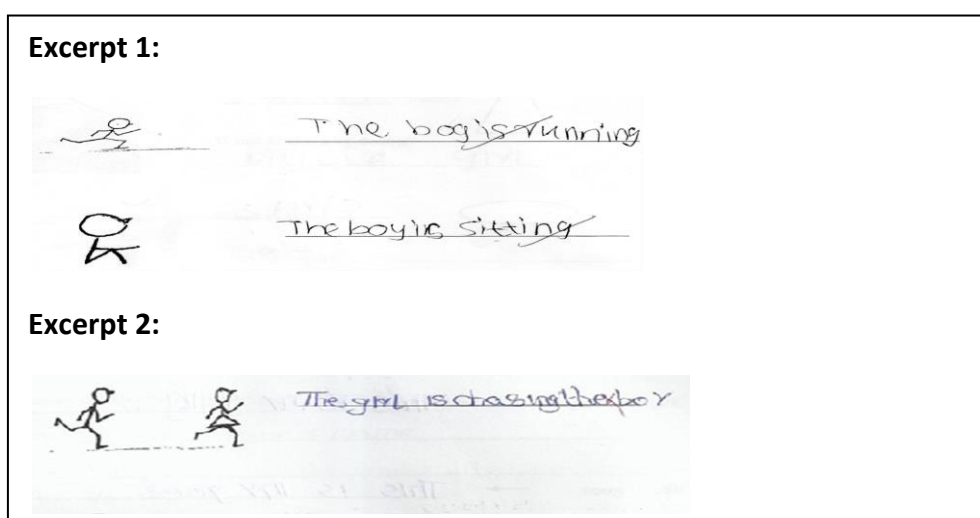 Excerpt 1:
The bog is running
The boy is sitting
Excerpt 2:
The girl is chasing the boy